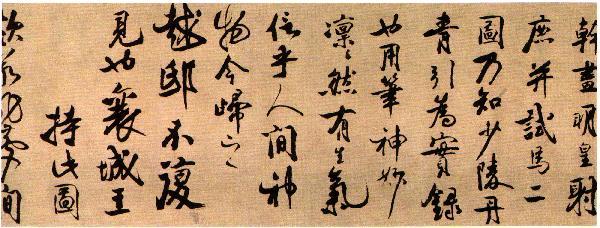 幹畫明皇射
鹿并試馬二
圖乃知少陵丹
青引為實錄
也用筆神妙
凜〻然有生氣
信乎人間神
物今歸
越邸不復
見也襄城王
持此圖
間